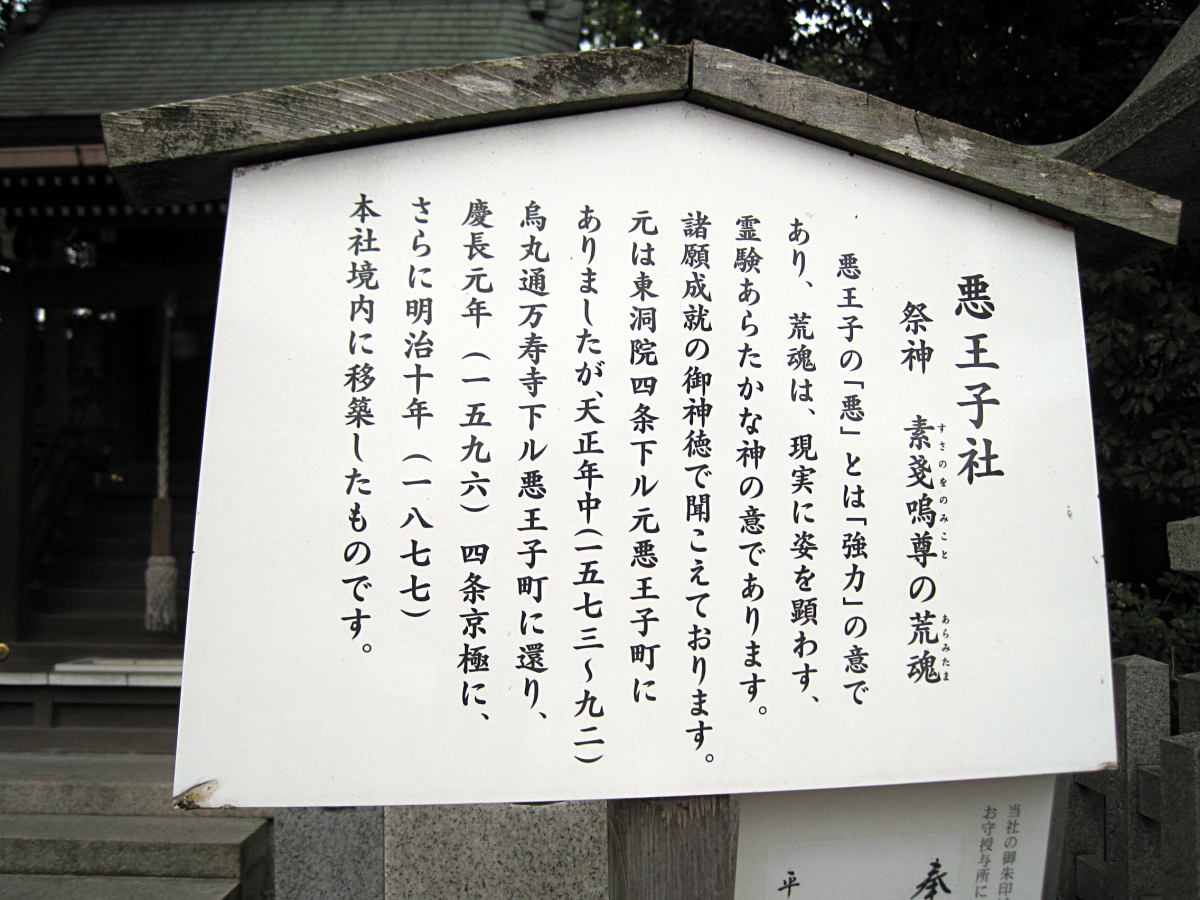 悪王子社
祭神　素戔嗚尊の荒魂
すさのをのみこと　あらみたま
悪王子の「悪」とは「強力」の意で
あり、荒魂は、現実に姿を顕わす、
霊験あらたかな神の意であります。
諸願成就の御神徳で聞こえております。
元は東洞院四条下ル元悪王子町に
ありましたが、天正年中(一五七三〜九二)
烏丸通万寿寺下ル悪王子町に還り、
慶長元年（一五九六）四条京極に、
さらに明治十年（一八七七）
本社境内に移築したものです。
当社の御朱印
お守授与所に
奉
平